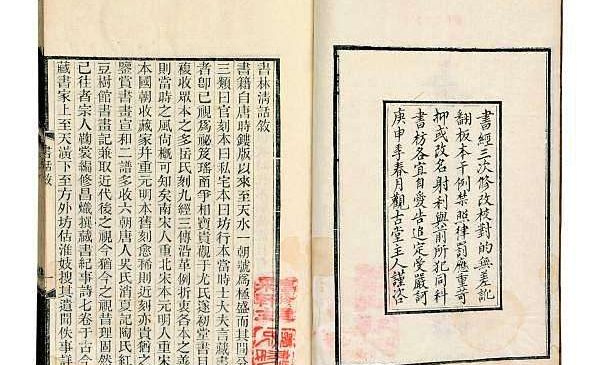 書經三次修改校對的無差訛
翻板本干例禁照律罰應重苛
抑或改名射利與前所犯同科
書枋各宜自愛告追定受嚴訶
庚申季春月觀古堂主人謹咨
書林淸話敘
書籍自唐時鏤版以來至天水一朝號爲極盛而其間分
三類曰官刻本曰私宅本曰坊行本當時士大夫言藏書
者卽已視爲祕笈瑤函爭相寶貴觀于尤氏遂初堂書目
複收眾本之多岳氏刻九經三傳沿革例折衷各本之善
則當時之風尚概可知矣南宋人重北宋本元明人重宋
本國朝收藏家并重元明本舊刻愈稀則近刻亦貴猶之
鑒賞書畫宣和二譜多收六朝唐人吳氏消夏記陶氏紅
豆樹館書畫記兼取近代後之視今猶今之視昔理固然
已往者宗人鞠裳編修昌熾撰藏書紀事詩七卷于古今
藏書家上至天潢下至方外坊估淮妓搜其遺聞佚事詳
書話敘
一